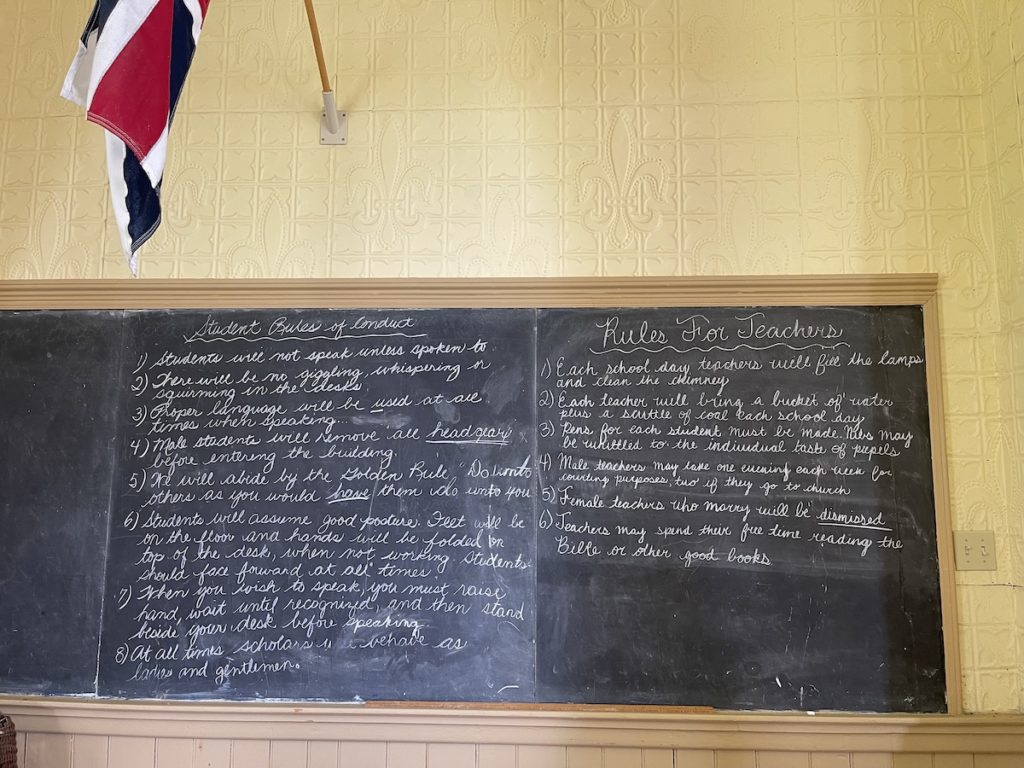 Student Rules of Conduct
1) Students will not speak unless spoken to.
2) There will be no giggling, whispering or
squirming in the desks.
3) Proper language will be used at all
times when speaking...
4) Male students will remove all headgear
before entering the building.
5) We will abide by the Golden Rule "Do unto
others as you would have them do unto you
6) Students will assume good posture. Feet will be
on the floor and hands will be folded on
top of the desk, when not working. Students
should face forward at all times.
7) When you wish to speak, you must raise
hand, wait until recognized, and then stand
beside your desk before speaking.
8) At all times scholars behave as
ladies and gentlemen.
Rules For Teachers
1) Each school day teachers will fill the lamps
and clean the chimney
2) Each teacher will bring a bucket of water
plus a scuttle of coal each school day
3) Pens for each student must be made. Nibs may
be whittled to the individual taste of pupils
4) Male teachers may take one evening each week for
courting purposes, two if they go to church
5) Female teachers who marry will be dismissed
6) Teachers may spend their free time reading the
Bible or other good books.